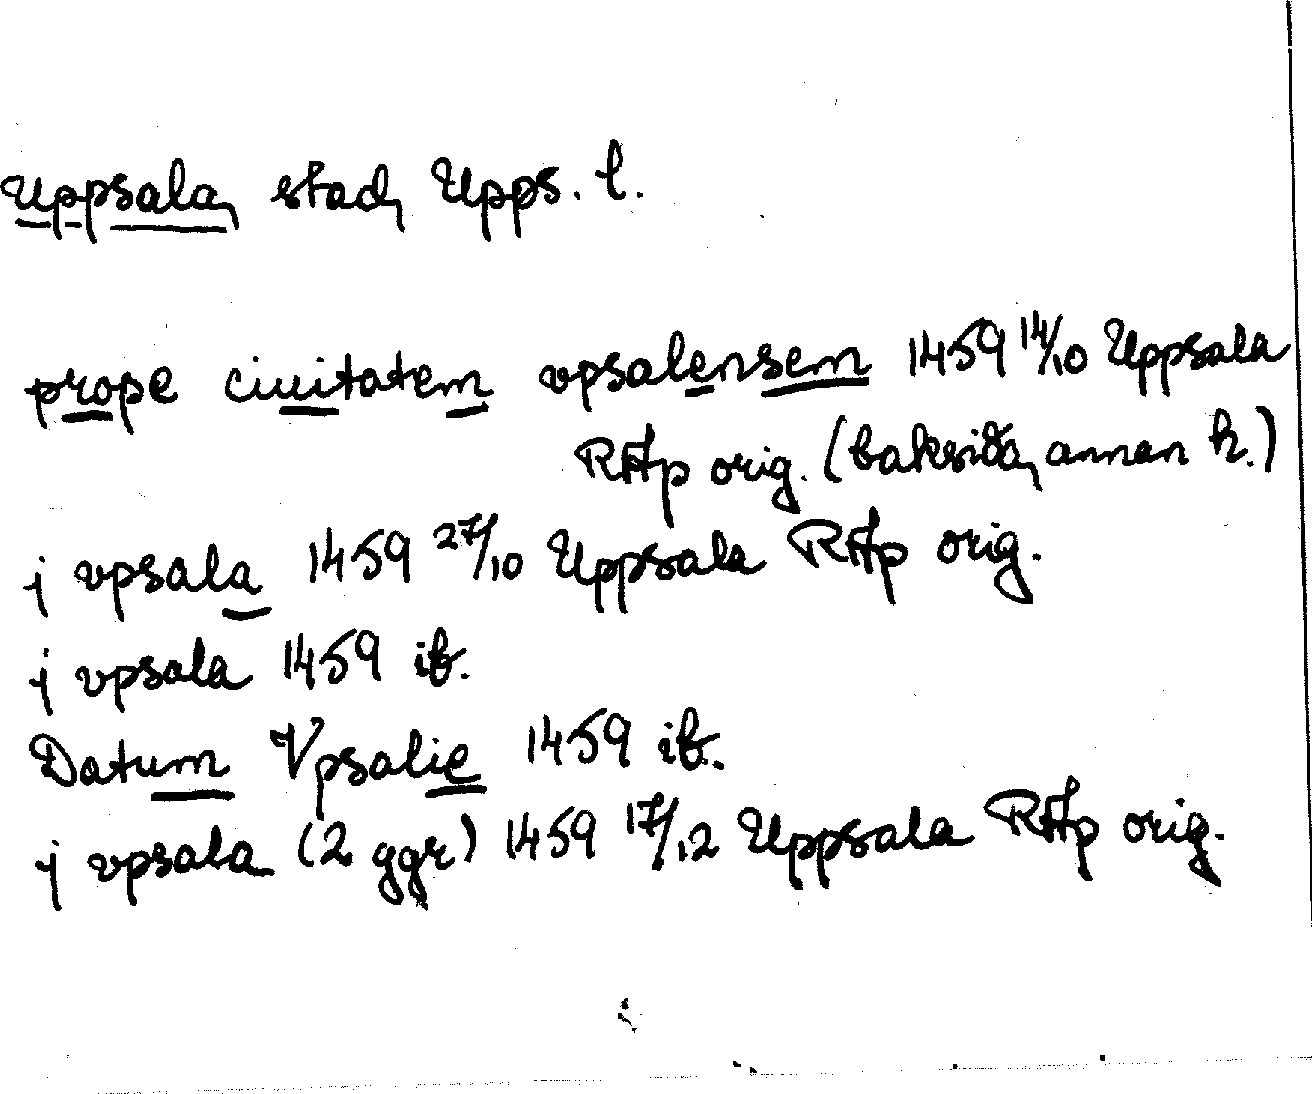 Uppsala, stad, Upps. l.
prope ciuitatem vpsalensem 1459 14/10 Uppsala
RAp orig. (baksida, annan h.)
j vpsala 1459 27/10 Uppsala RAp orig.
j vpsala 1459 ib.
Datum Vpsalie 1459 ib.
j vpsala (2 ggr) 1459 17/12 Uppsala RAp orig.